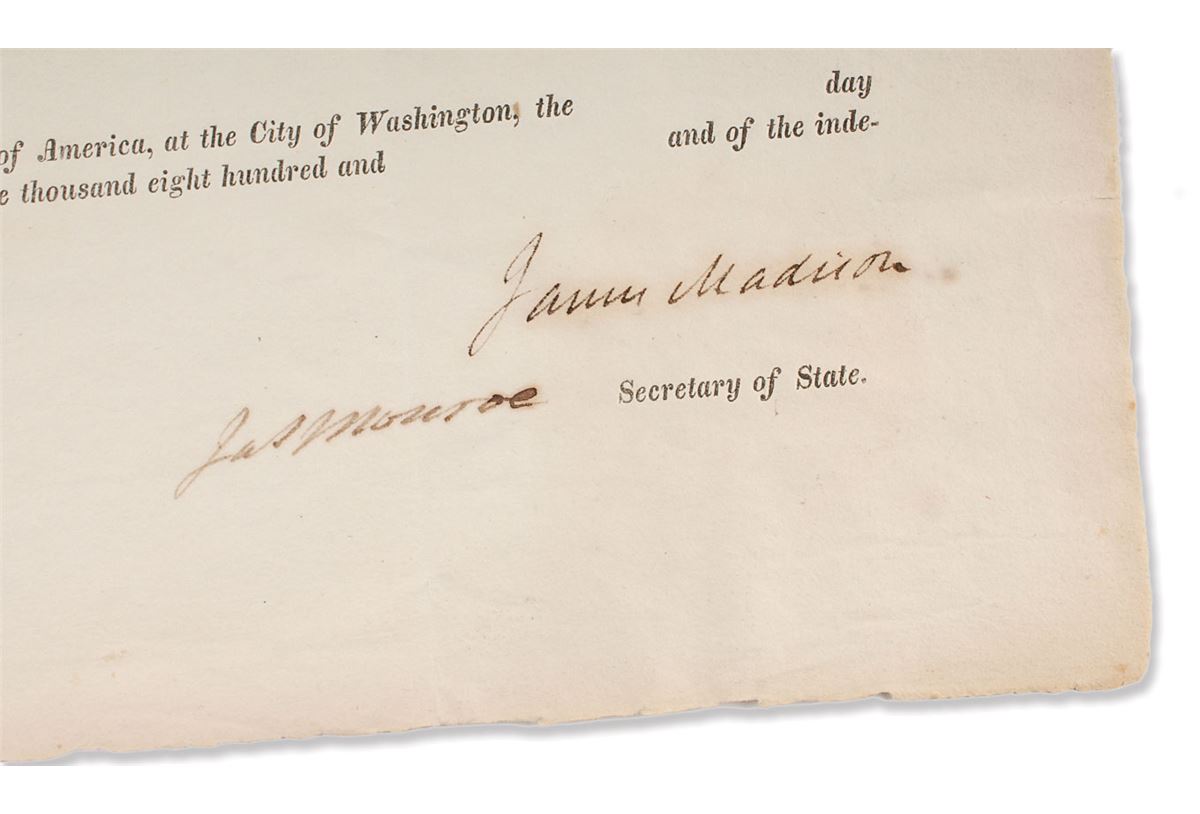 day
of America, at the City of Washington, the
and of the inde-
e thousand eight hundred and
James Madison
Secretary of State.
Jas Monroe